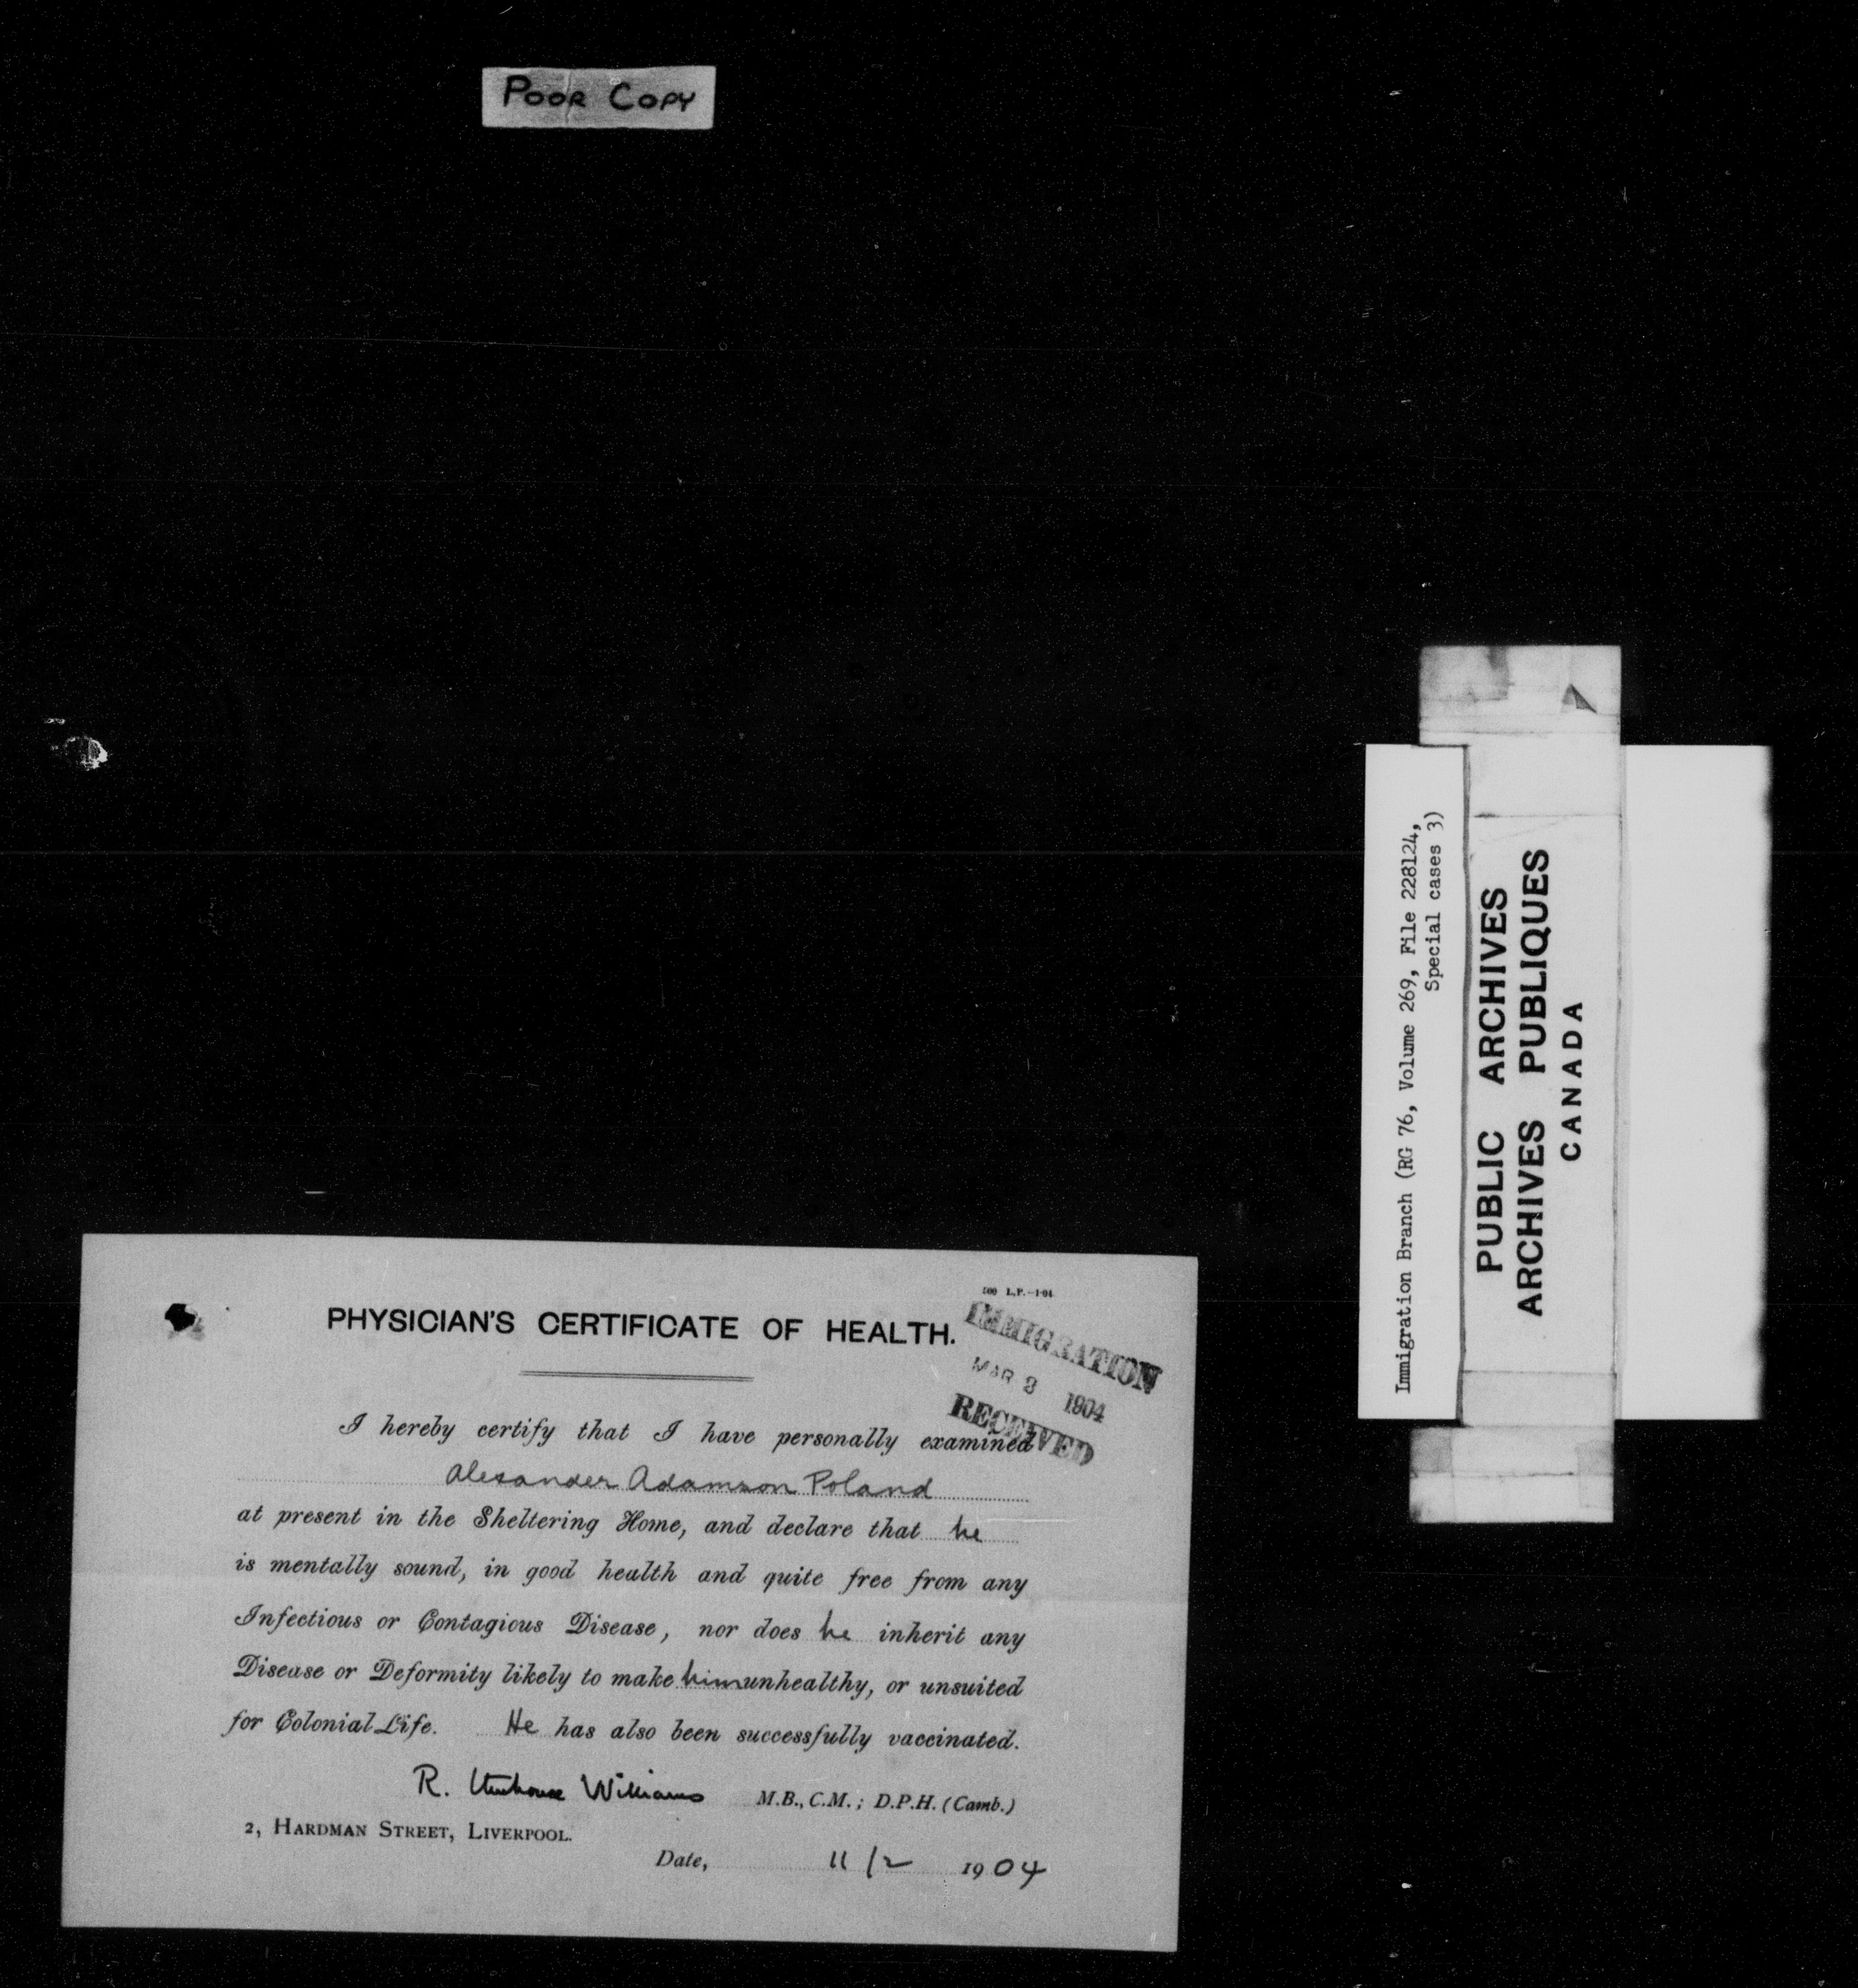 POOR COPY
Immigration Branch (RG 76, Volume 269, File 228124,
Special cases 3)
PUBLIC ARCHIVES
ARCHIVES PUBLIQUES
CANADA
500 L.P.—1-04
PHYSICIAN'S CERTIFICATE OF HEALTH.
IMMIGRATION
MAR 3 1904
RECEIVED
I hereby certify that I have personally examined
Alexander Adamson Poland
at present in the Sheltering Home, and declare that he
is mentally sound, in good health and quite free from any
Infectious or Contagious Disease, nor does he inherit any
Disease or Deformity likely to make him unhealthy, or unsuited
for Colonial Life. He has also been successfully vaccinated.
R. Williams M.B., C.M.; D.P.H. (Camb.)
2, HARDMAN STREET, LIVERPOOL.
Date, 11/2 1904